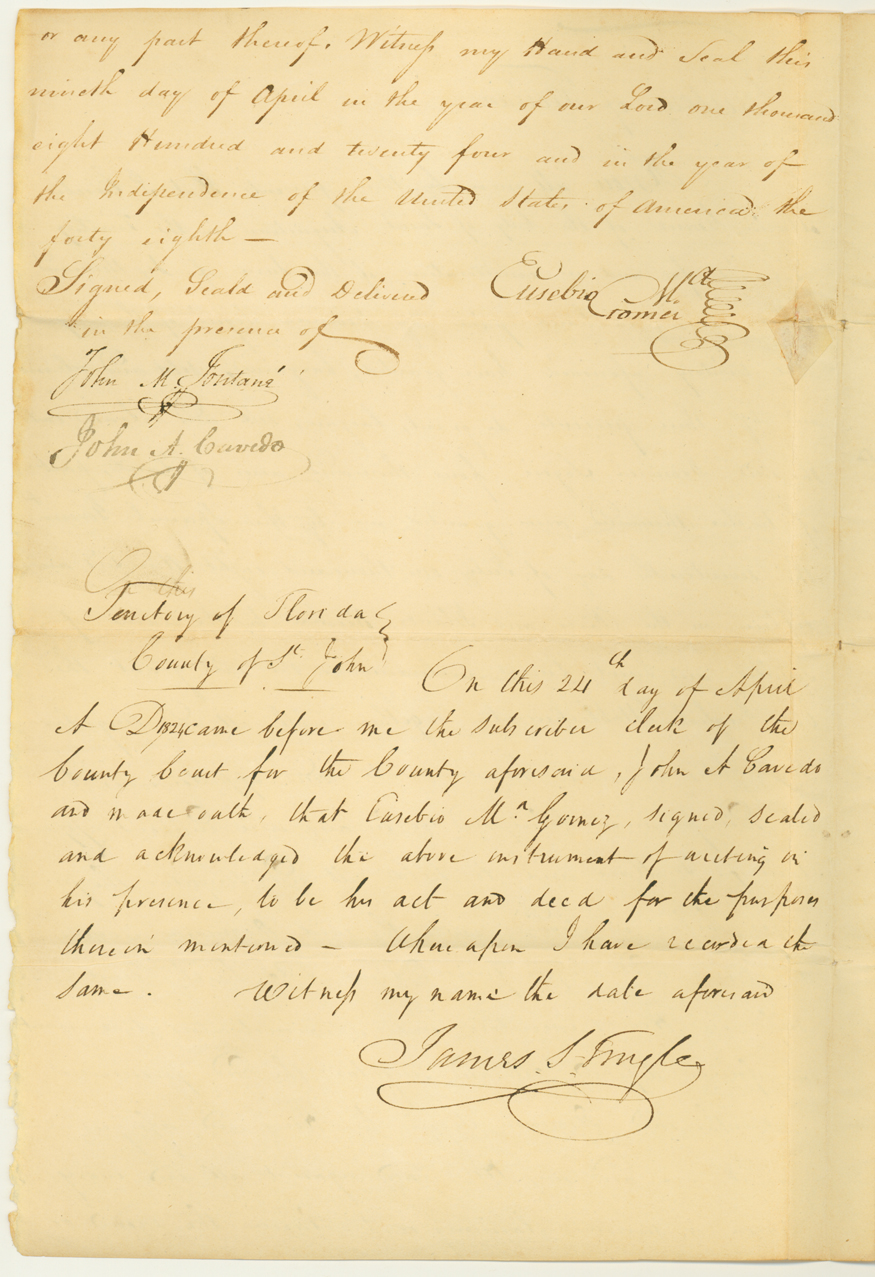 or any part thereof. Witness my Hand and Seal this
nineth day of April in the year of our Lord one thousand
eight Hundred and twenty four and in the year of
the Independence of the United States of America the
forty eighth —
Signed, Seald and Delivered
in the presence of
Eusebio Ma
Gomez
John M. Fontané
John A. Cavedo
On this
Territory of Florida
County of St John
On this 24th day of April
A D 1824 came before me the subscriber clerk of the
County Court for the County aforesaid, John A Cavedo
and made oath, that Eusebio Ma Gomez, signed, sealed
and acknowledged the above instrument of writing in
his presence, to be his act and deed for the purposes
therein mentioned — Whereupon I have recorded the
same. Witness my name the date aforesaid
James S. Tingle